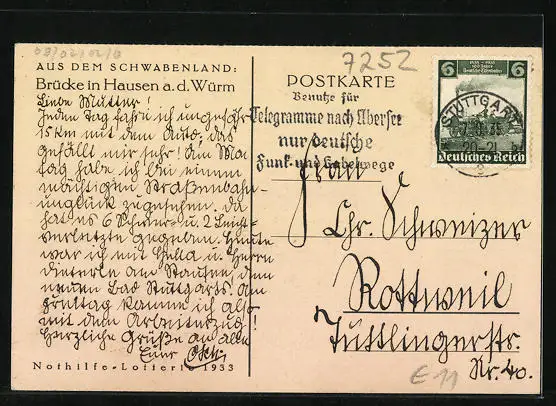 AUS DEM SCHWABENLAND:
Brücke in Hausen a. d. Würm
Liebe Mutter!
Jeden Tag fahre ich ungefähr
15 km mit dem Auto, das
gefällt mir sehr! Am Mon-
tag habe ich bei einem
mächtigen Straßenbahn-
unglück zugesehen. Da
hat es 6 Schwer- u. 2 Leicht-
verletzte gegeben. Heute
war ich mit Hella u. Herrn
Dieterle am Stausee, dem
neuen Bad Stuttgarts. Am
Freitag komme ich also
mit dem Arbeiterzug!
Herzliche Grüße an alle
Euer
Nothilfe-Lotterie 1933
7252
POSTKARTE
Benutze für
Telegramme nach Übersee
nur deutsche
Funk- und Kabelwege
6 6
1835 - 1935
100 Jahre
Deutsche Eisenbahn
Deutsches Reich
STUTTGART
35
20-21
Frau
Chr. Schweizer
Rottweil
Tuttlingerstr.
Nr. 40.
E 11